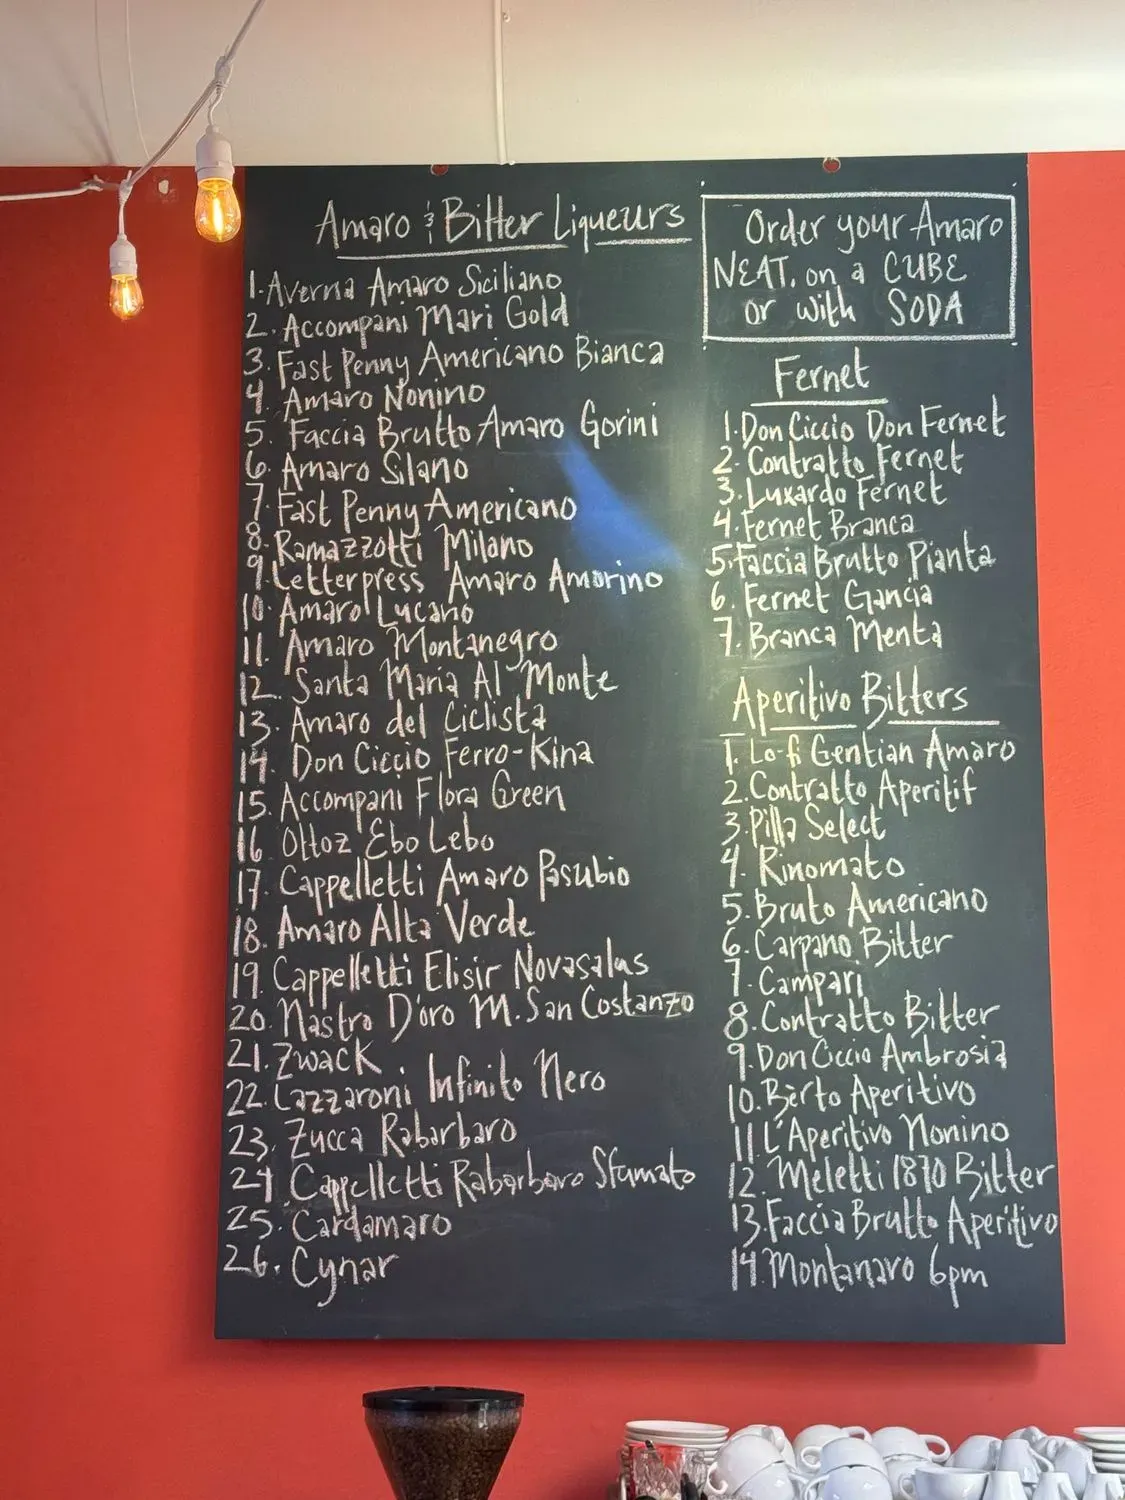 Amaro & Bitter Liqueurs
1. Averna Amaro Siciliano
2. Accompani Mari Gold
3. Fast Penny Americano Bianca
4. Amaro Nonino
5. Faccia Brutto Amaro Gorini
6. Amaro Silano
7. Fast Penny Americano
8. Ramazzotti Milano
9. Letterpress Amaro Amorino
10. Amaro Lucano
11. Amaro Montanegro
12. Santa Maria Al Monte
13. Amaro del Ciclista
14. Don Ciccio Ferro-Kina
15. Accompani Flora Green
16 Ottoz Ebo Lebo
17. Cappelletti Amaro Pasubio
18. Amaro Alta Verde
19. Cappelletti Elisir Novasalus
20. Nastro D'oro M. San Costanzo
21. Zwack
22. Lazzaroni Infinito Nero
23. Zucca Rabarbaro
24. Cappelletti Rabarbaro Sfumato
25. Cardamaro
26. Cynar
Order your Amaro
NEAT, on a CUBE
or with SODA
Fernet
1. Don Ciccio Don Fernet
2. Contratto Fernet
3. Luxardo Fernet
4. Fernet Branca
5. Faccia Brutto Pianta
6. Fernet Gancia
7. Branca Menta
Aperitivo Bitters
1. Lo-fi Gentian Amaro
2. Contratto Aperitif
3. Pilla Select
4. Rinomato
5. Bruto Americano
6. Carpano Bitter
7. Campari
8. Contratto Bitter
9. Don Ciccio Ambrosia
10. Bèrto Aperitivo
11. L'Aperitivo Nonino
12. Meletti 1870 Bitter
13. Faccia Brutto Aperitivo
14. Montanaro 6pm